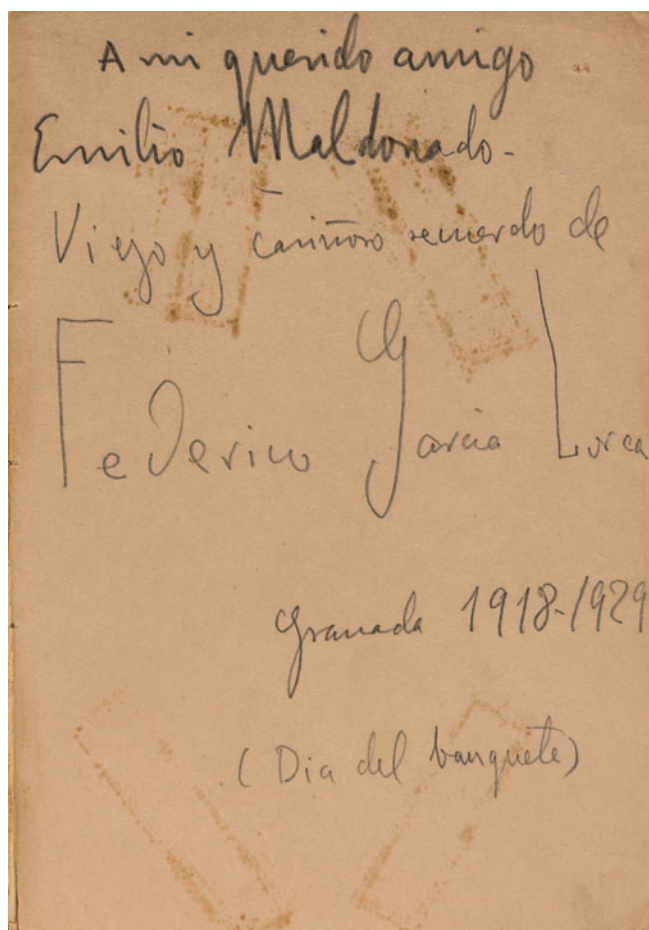 A mi querido amigo
Emilio Maldonado-
Viejo y cariñoso recuerdo de
Federico García Lorca
Granada 1918-1929
(Dia del banquete)